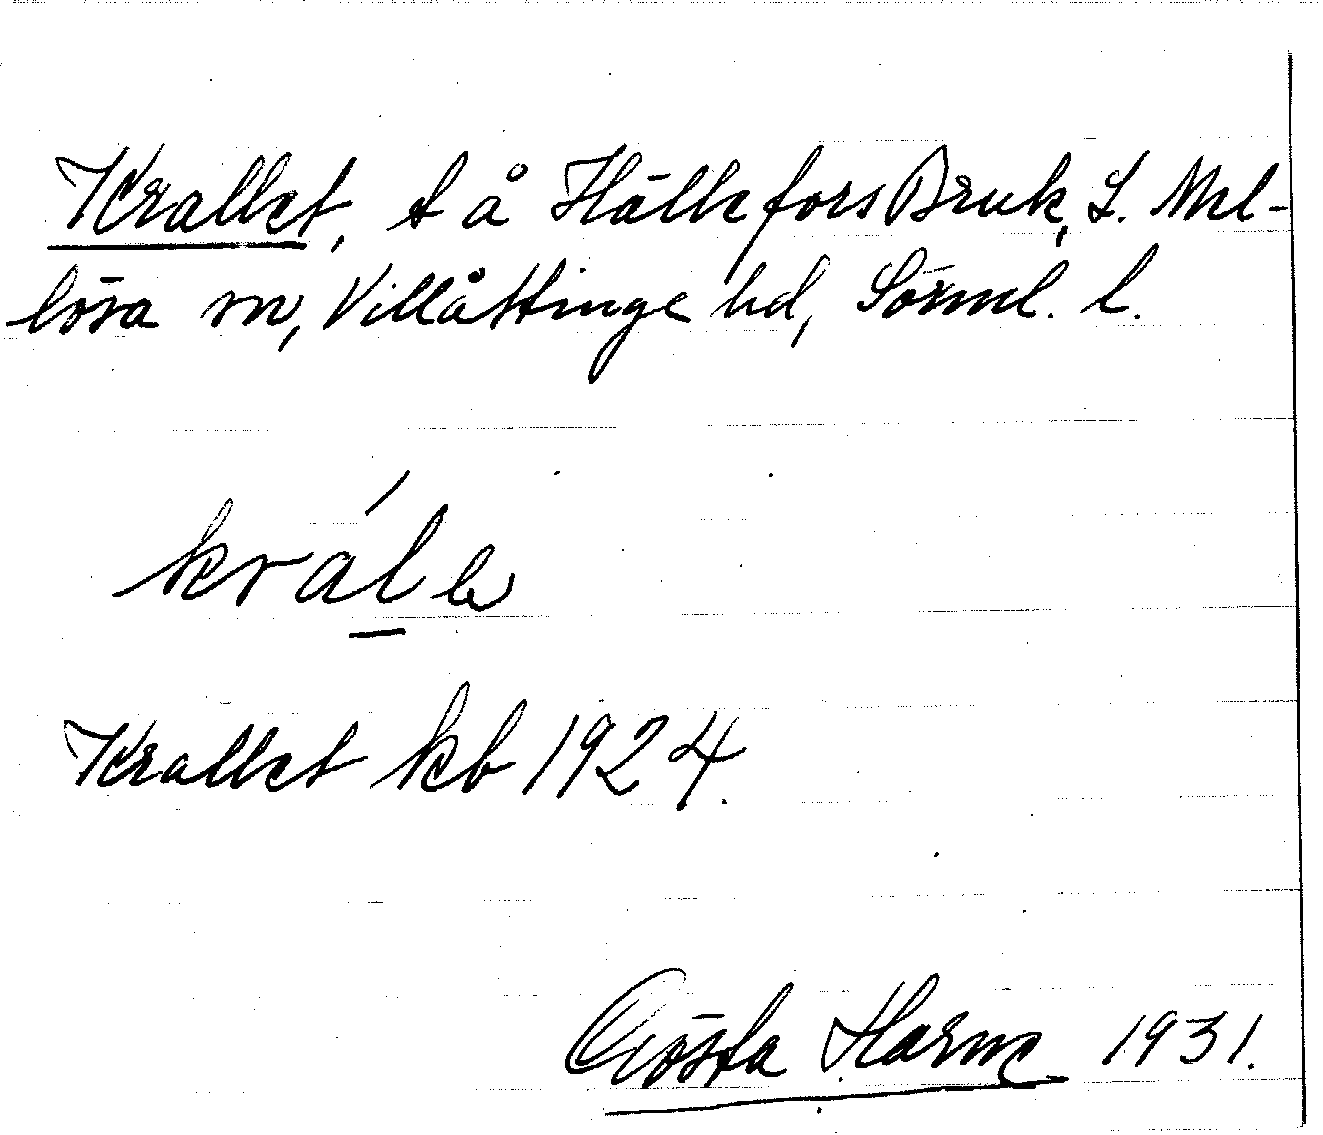 Krallet, t å Hälleforsbruk, L. Mel-
lösa sn, Villåttinge hd, Sörml. l.
krále
Krallet kb 1924.
Gösta Harme 1931.